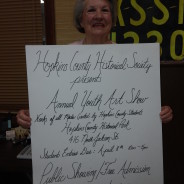 KSST
1230
Hopkins County Historical Society
presents
Annual Youth Art Show
Works of all Media Created by Hopkins County Students
Hopkins County Historical Park
416 Jackson St.
Students Entries Due: April
Public Showing Free Admission